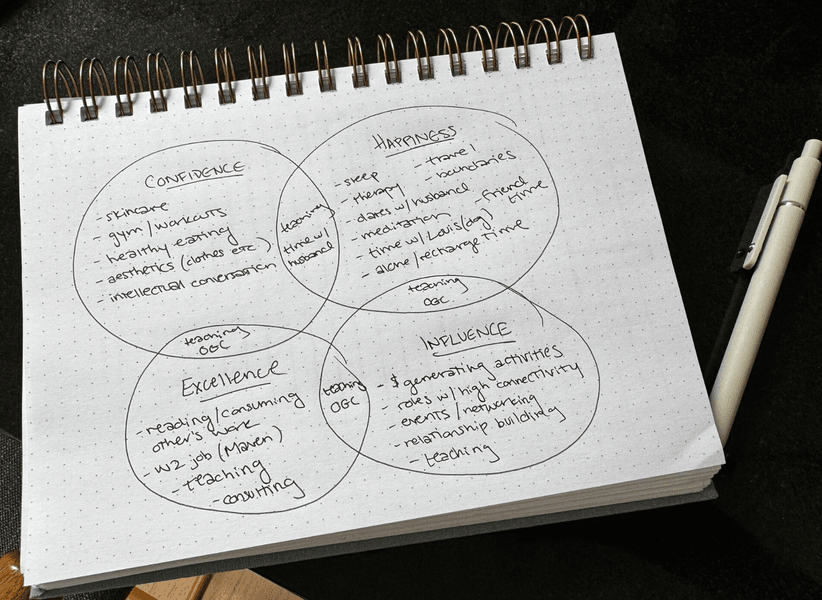 CONFIDENCE
- skincare
- gym/workouts
- healthy eating
- aesthetics (clothes etc.)
- intellectual conversation
teaching
time w/
husband
HAPPINESS
- sleep
- therapy
- dates w/ husband
- meditation
- time w/ Louis (dog)
- alone/recharge time
- travel
- boundaries
- friend
time
teaching
OGC
teaching
OGC
Excellence
- reading/consuming
other's work
- W2 job (Maven)
- teaching
- consulting
teaching
OGC
INFLUENCE
- $ generating activities
- roles w/ high connectivity
- events/networking
- relationship building
- teaching